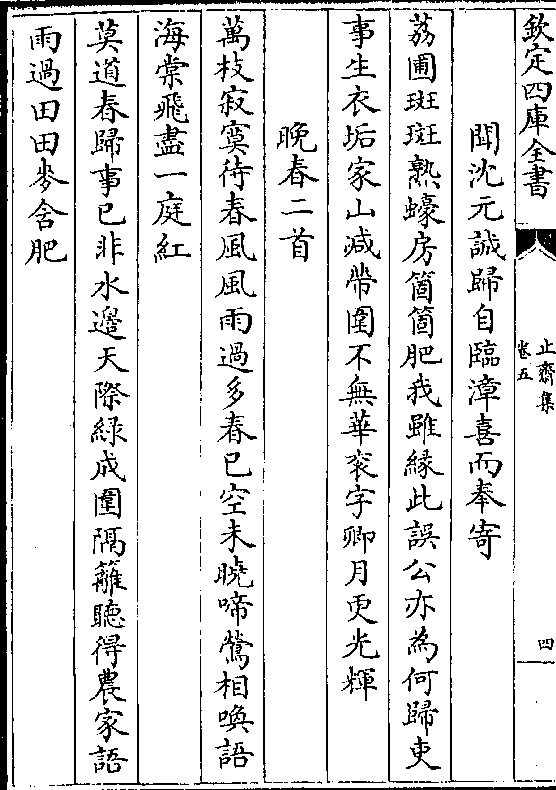 欽定四庫全書
止齋集
卷五
四
聞沈元誠歸自臨漳喜而奉寄
荔圃斑斑熟蠔房箇箇肥我雖緣此誤公亦為何歸吏
事生衣垢家山减帶圍不無華衮字卿月更光輝
晩春二首
萬枝寂寞待春風風雨過多春已空未曉啼鶯相喚語
海棠飛盡一庭紅
莫道春歸事已非水邊天際緑成圍隔籬聽得農家語
雨過田田麥含肥